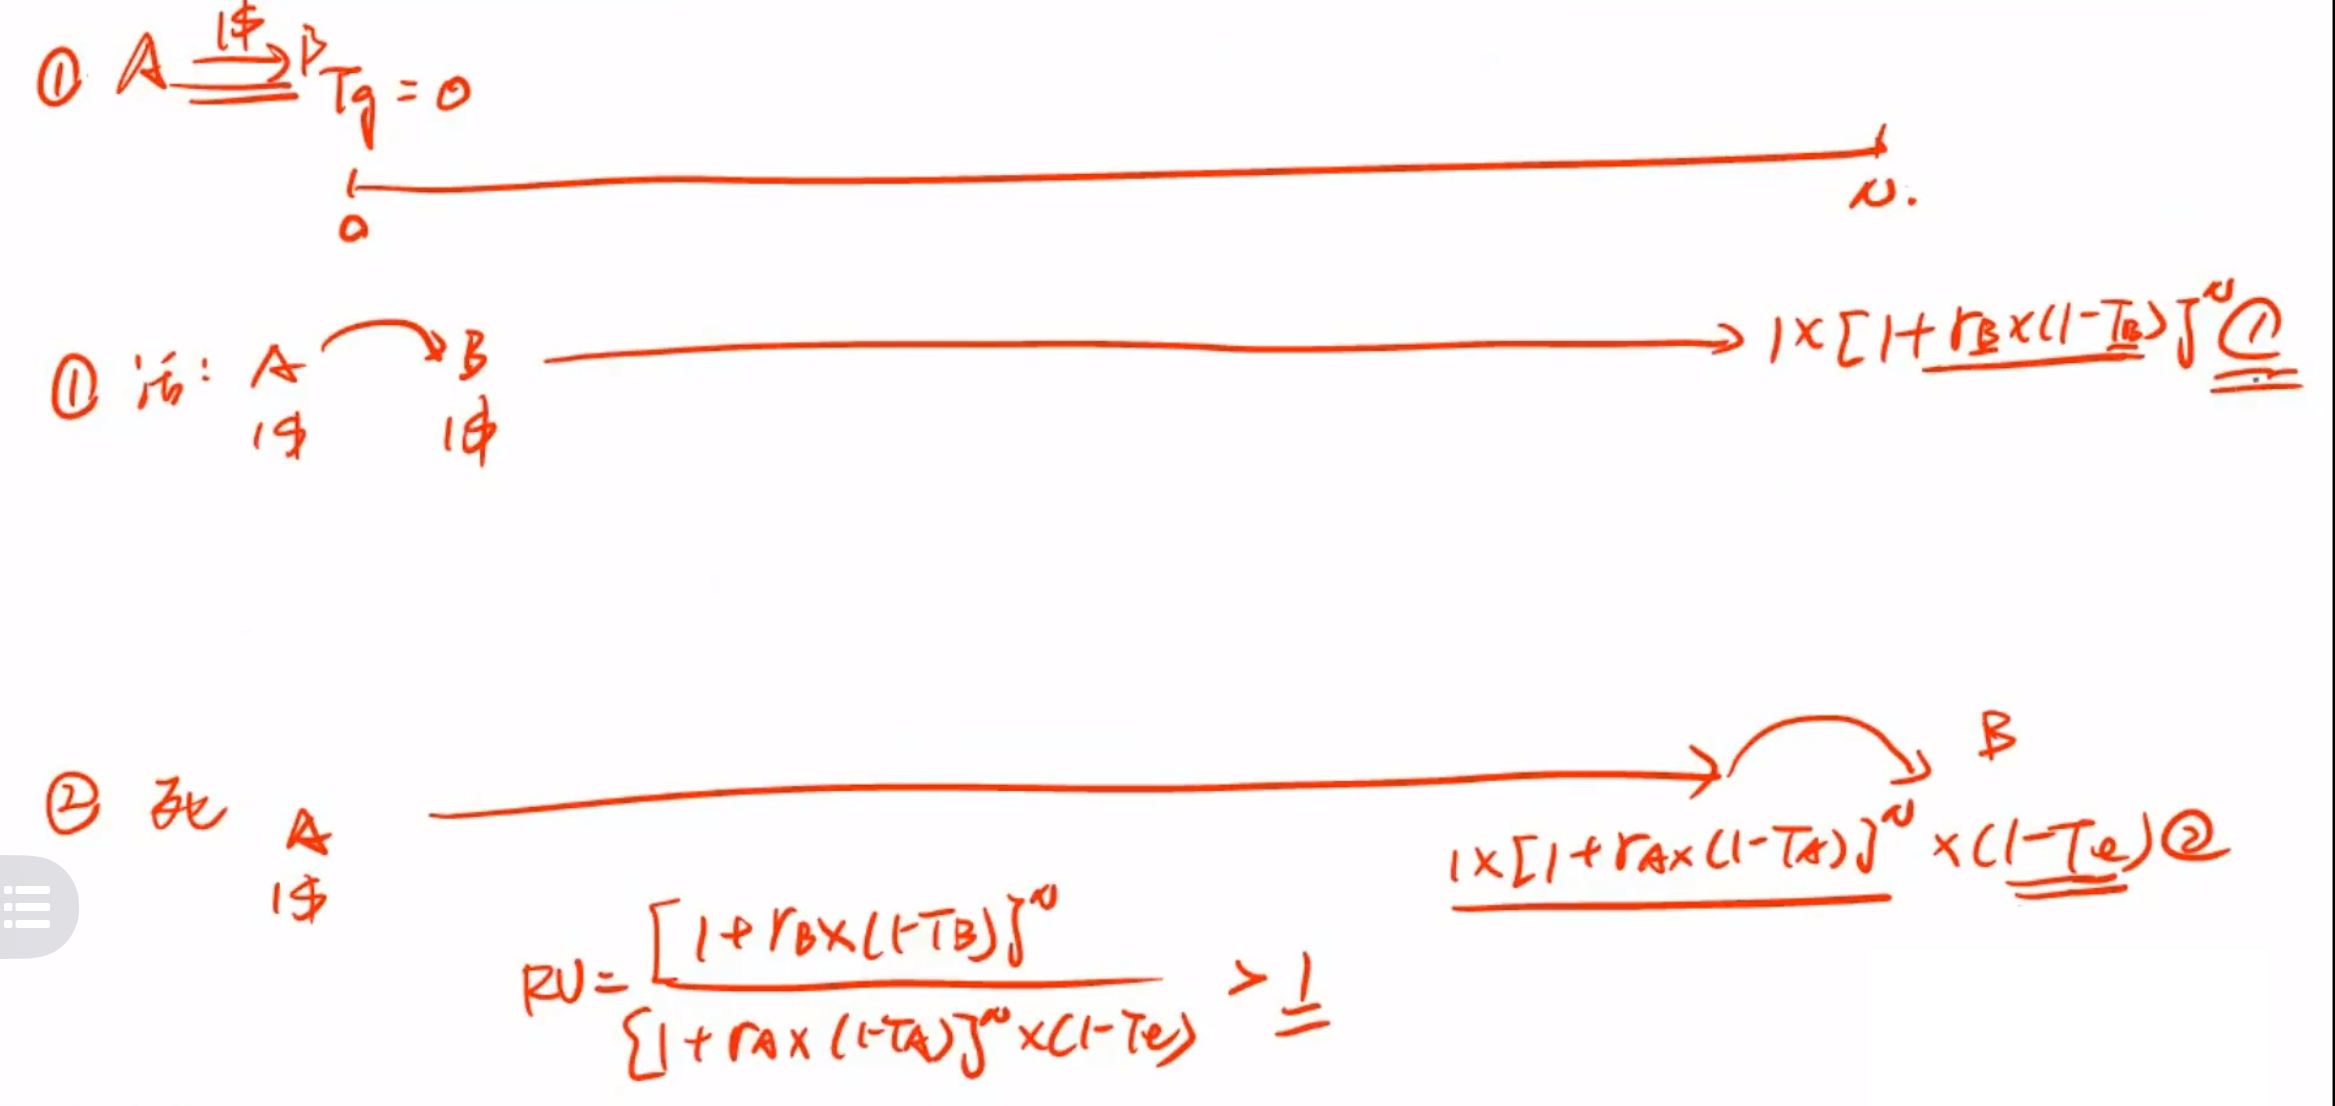 ① A 1$ B Tg = 0
0 N.
① 活: A B 1×[1+rB×(1-TB)]^N ①
1$ 1$
② 死 A B
1$ 1×[1+rA×(1-TA)]^N ×(1-Te) ②
RV = [1+rB×(1-TB)]^N / [1+rA×(1-TA)]^N ×(1-Te) > 1